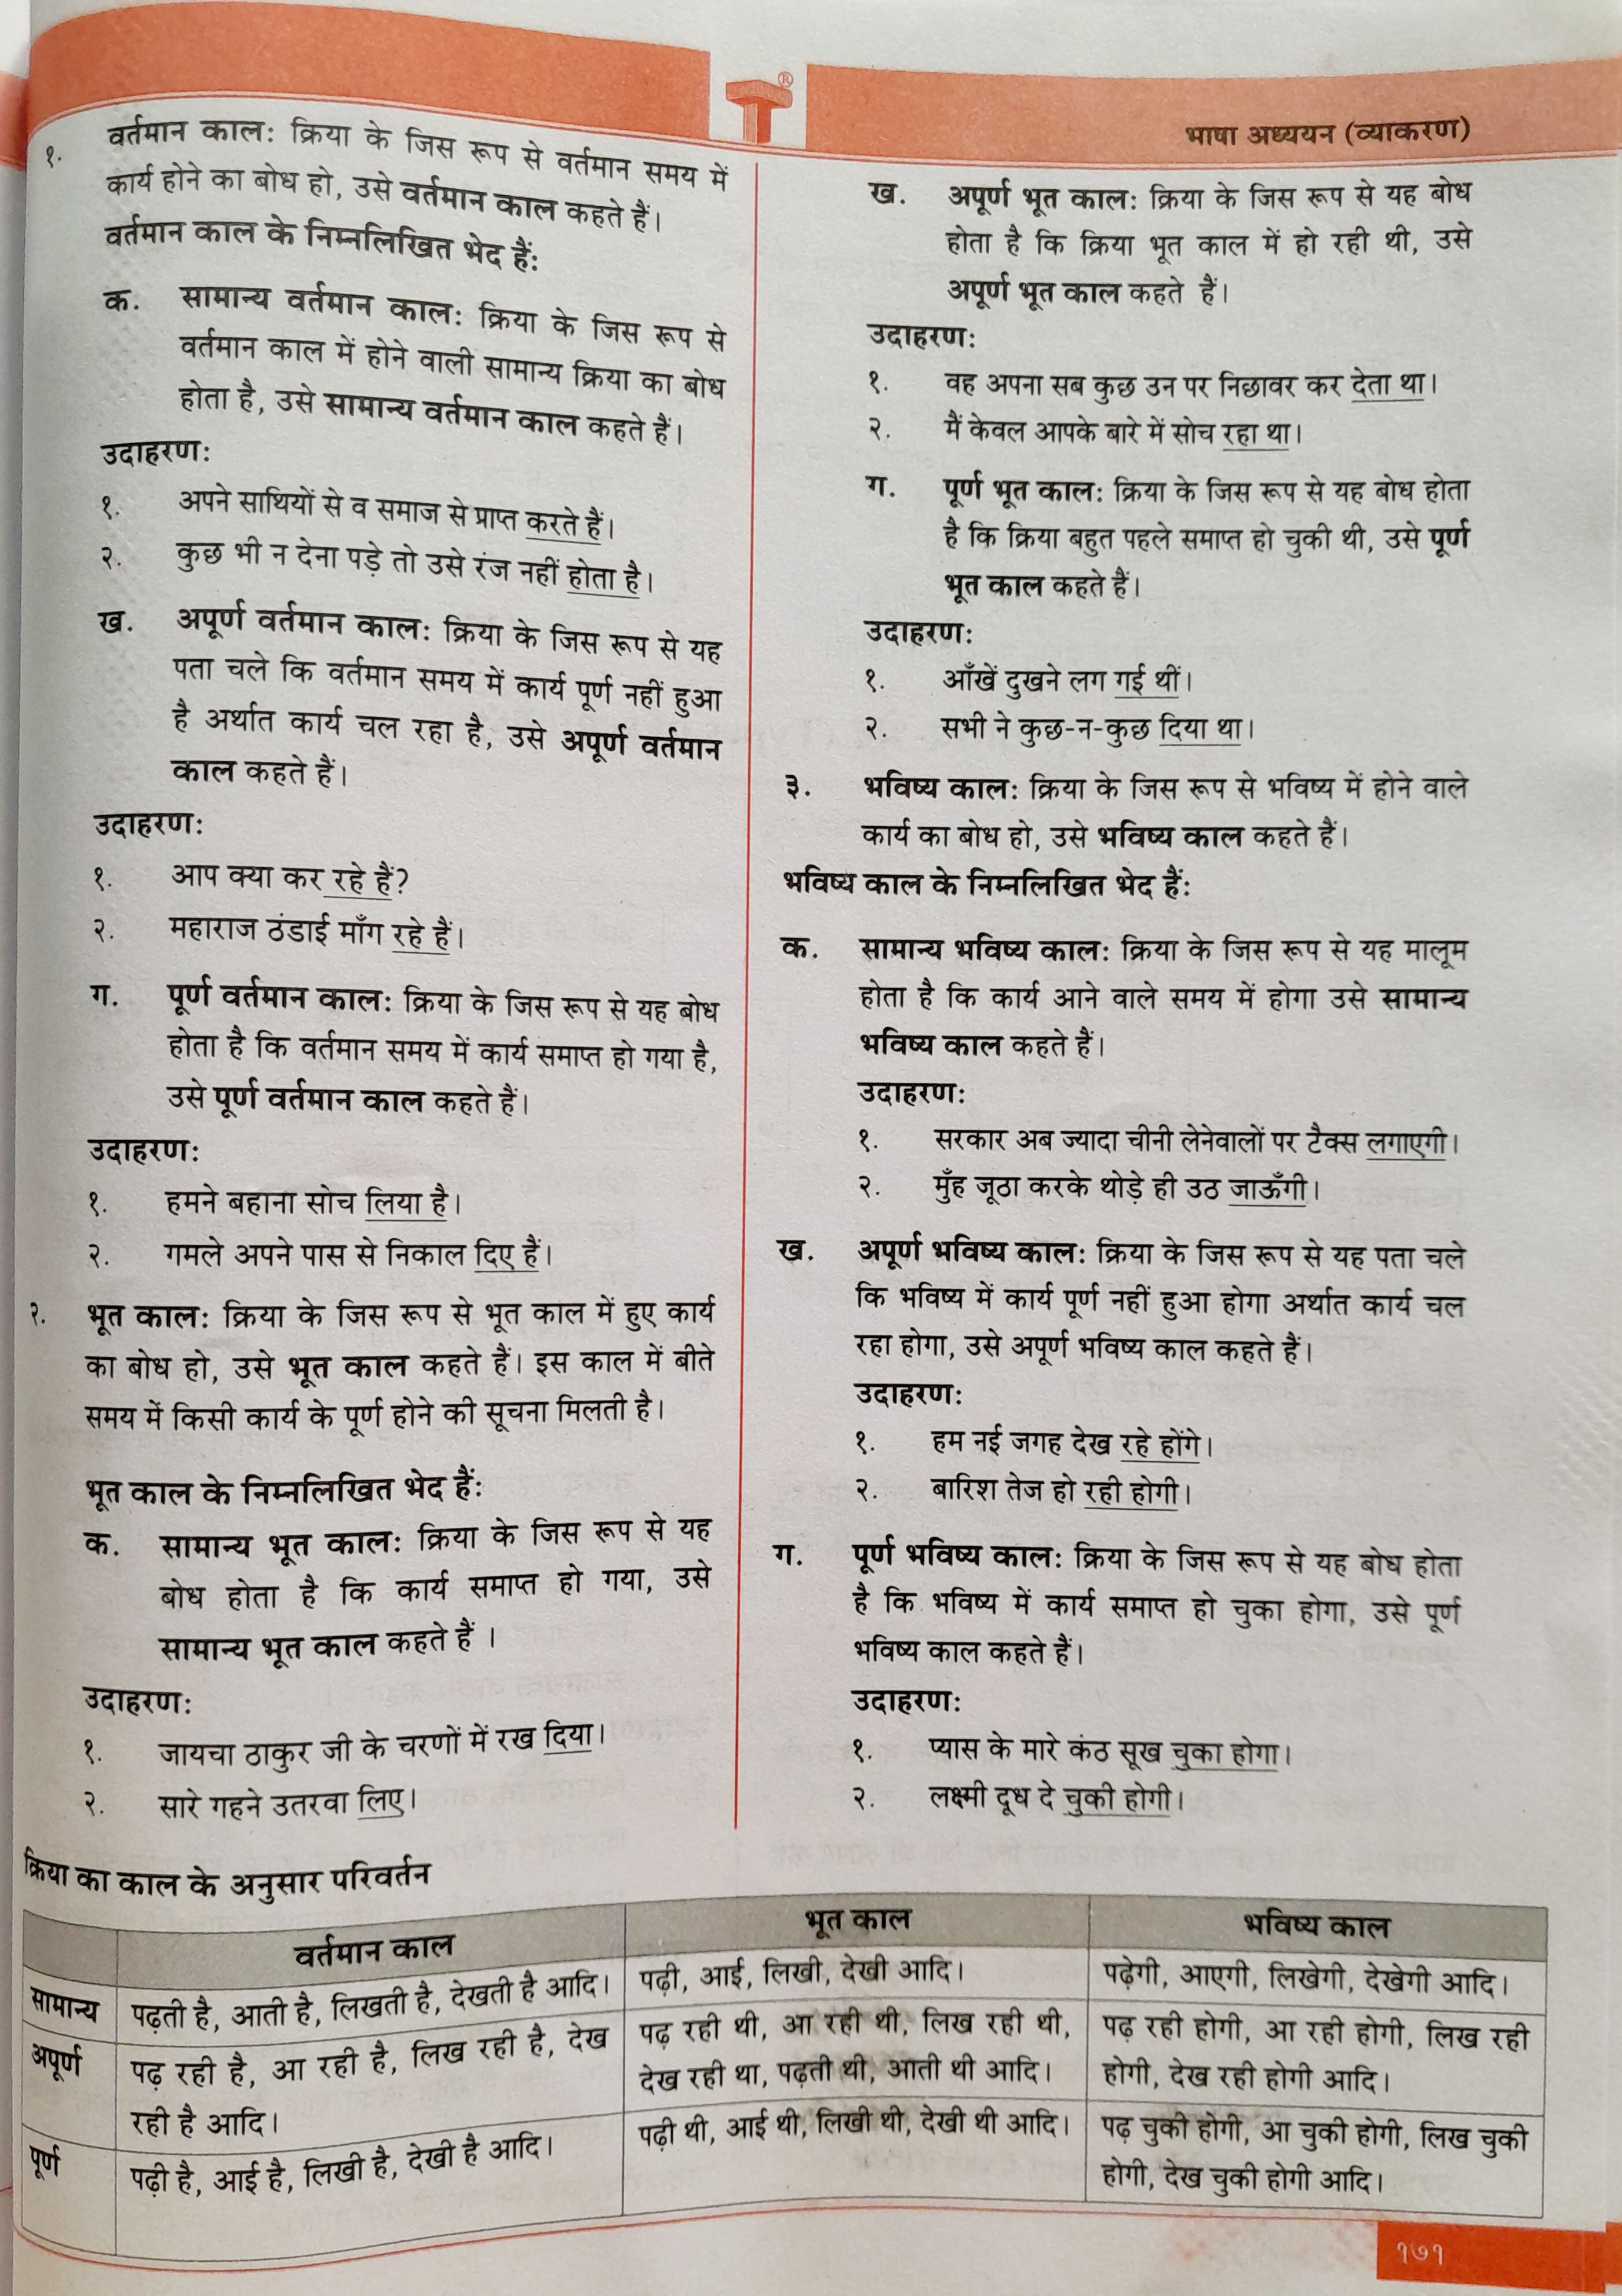 ®
भाषा अध्ययन (व्याकरण)
१. वर्तमान काल: क्रिया के जिस रूप से वर्तमान समय में
कार्य होने का बोध हो, उसे वर्तमान काल कहते हैं।
वर्तमान काल के निम्नलिखित भेद हैं:
क. सामान्य वर्तमान काल: क्रिया के जिस रूप से
वर्तमान काल में होने वाली सामान्य क्रिया का बोध
होता है, उसे सामान्य वर्तमान काल कहते हैं।
उदाहरण:
१. अपने साथियों से व समाज से प्राप्त करते हैं।
२. कुछ भी न देना पड़े तो उसे रंज नहीं होता है।
ख. अपूर्ण वर्तमान काल: क्रिया के जिस रूप से यह
पता चले कि वर्तमान समय में कार्य पूर्ण नहीं हुआ
है अर्थात कार्य चल रहा है, उसे अपूर्ण वर्तमान
काल कहते हैं।
उदाहरण:
१. आप क्या कर रहे हैं?
२. महाराज ठंडाई माँग रहे हैं।
ग. पूर्ण वर्तमान काल: क्रिया के जिस रूप से यह बोध
होता है कि वर्तमान समय में कार्य समाप्त हो गया है,
उसे पूर्ण वर्तमान काल कहते हैं।
उदाहरण:
१. हमने बहाना सोच लिया है।
२. गमले अपने पास से निकाल दिए हैं।
२. भूत काल: क्रिया के जिस रूप से भूत काल में हुए कार्य
का बोध हो, उसे भूत काल कहते हैं। इस काल में बीते
समय में किसी कार्य के पूर्ण होने की सूचना मिलती है।
भूत काल के निम्नलिखित भेद हैं:
क. सामान्य भूत काल: क्रिया के जिस रूप से यह
बोध होता है कि कार्य समाप्त हो गया, उसे
सामान्य भूत काल कहते हैं ।
उदाहरण:
१. जायचा ठाकुर जी के चरणों में रख दिया।
२. सारे गहने उतरवा लिए।
ख. अपूर्ण भूत काल: क्रिया के जिस रूप से यह बोध
होता है कि क्रिया भूत काल में हो रही थी, उसे
अपूर्ण भूत काल कहते हैं।
उदाहरण:
१. वह अपना सब कुछ उन पर निछावर कर देता था।
२. मैं केवल आपके बारे में सोच रहा था।
ग. पूर्ण भूत काल: क्रिया के जिस रूप से यह बोध होता
है कि क्रिया बहुत पहले समाप्त हो चुकी थी, उसे पूर्ण
भूत काल कहते हैं।
उदाहरण:
१. आँखें दुखने लग गई थीं।
२. सभी ने कुछ-न-कुछ दिया था।
३. भविष्य काल: क्रिया के जिस रूप से भविष्य में होने वाले
कार्य का बोध हो, उसे भविष्य काल कहते हैं।
भविष्य काल के निम्नलिखित भेद हैं:
क. सामान्य भविष्य काल: क्रिया के जिस रूप से यह मालूम
होता है कि कार्य आने वाले समय में होगा उसे सामान्य
भविष्य काल कहते हैं।
उदाहरण:
१. सरकार अब ज्यादा चीनी लेनेवालों पर टैक्स लगाएगी।
२. मुँह जूठा करके थोड़े ही उठ जाऊँगी।
ख. अपूर्ण भविष्य काल: क्रिया के जिस रूप से यह पता चले
कि भविष्य में कार्य पूर्ण नहीं हुआ होगा अर्थात कार्य चल
रहा होगा, उसे अपूर्ण भविष्य काल कहते हैं।
उदाहरण:
१. हम नई जगह देख रहे होंगे।
२. बारिश तेज हो रही होगी।
ग. पूर्ण भविष्य काल: क्रिया के जिस रूप से यह बोध होता
है कि भविष्य में कार्य समाप्त हो चुका होगा, उसे पूर्ण
भविष्य काल कहते हैं।
उदाहरण:
१. प्यास के मारे कंठ सूख चुका होगा।
२. लक्ष्मी दूध दे चुकी होगी।
क्रिया का काल के अनुसार परिवर्तन
वर्तमान काल भूत काल भविष्य काल
सामान्य पढ़ती है, आती है, लिखती है, देखती है आदि। पढ़ी, आई, लिखी, देखी आदि। पढ़ेगी, आएगी, लिखेगी, देखेगी आदि।
अपूर्ण पढ़ रही है, आ रही है, लिख रही है, देख पढ़ रही थी, आ रही थी, लिख रही थी, पढ़ रही होगी, आ रही होगी, लिख रही
रही है आदि। देख रही था, पढ़ती थी, आती थी आदि। होगी, देख रही होगी आदि।
पूर्ण पढ़ी है, आई है, लिखी है, देखी है आदि। पढ़ी थी, आई थी, लिखी थी, देखी थी आदि। पढ़ चुकी होगी, आ चुकी होगी, लिख चुकी
होगी, देख चुकी होगी आदि।
१७१